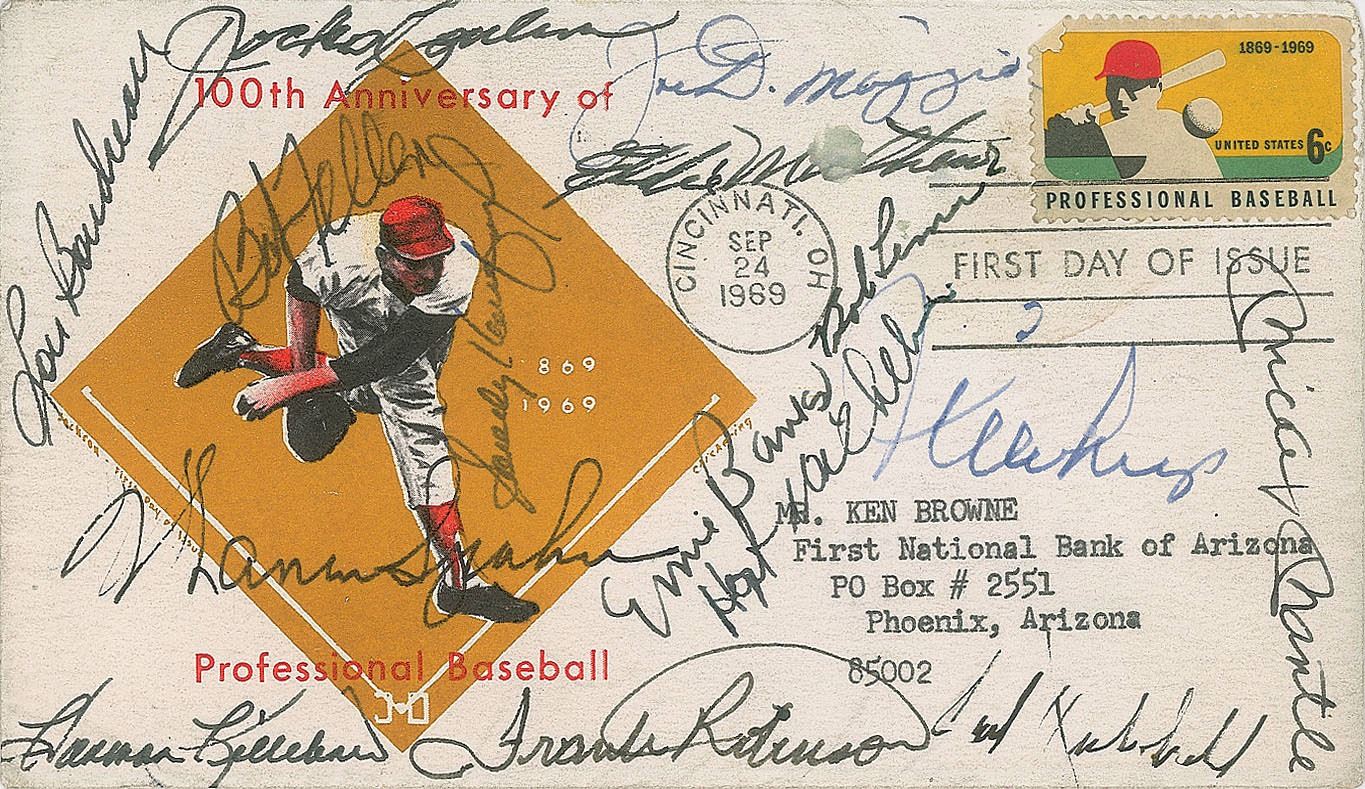 100th Anniversary of
Joe DiMaggio
1869-1969
UNITED STATES 6c
PROFESSIONAL BASEBALL
Lou Boudreau
Bob Feller
Sandy Koufax
Eddie Mathews
CINCINNATI, OH
SEP
24
1969
FIRST DAY OF ISSUE
Bob Lemon
Mickey Mantle
869
1969
Warren Spahn
Ernie Banks
MR. KEN BROWNE
First National Bank of Arizona
PO Box # 2551
Phoenix, Arizona
85002
Professional Baseball
Harmon Killebrew
Frank Robinson
Carl Hubbell